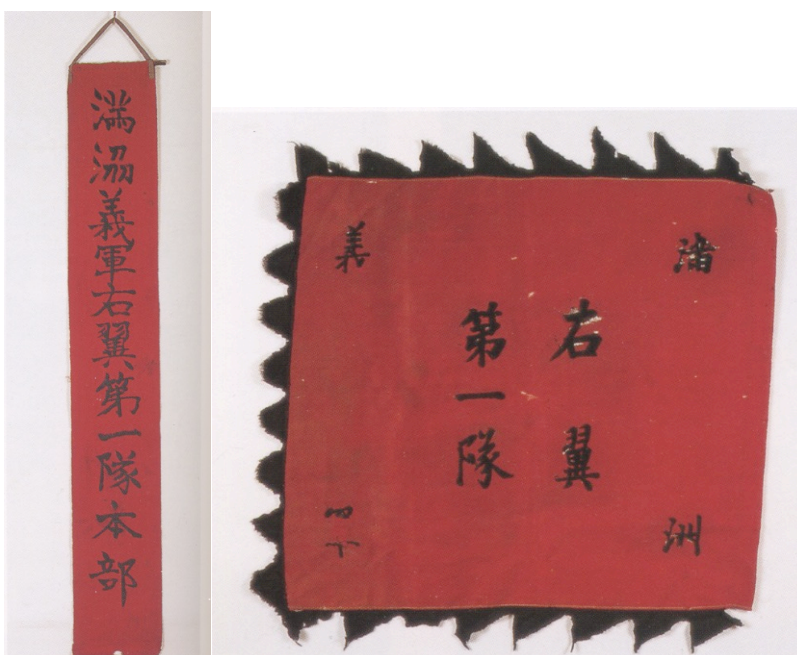 満洲義軍右翼第一隊本部
満洲
右翼
第一隊
義